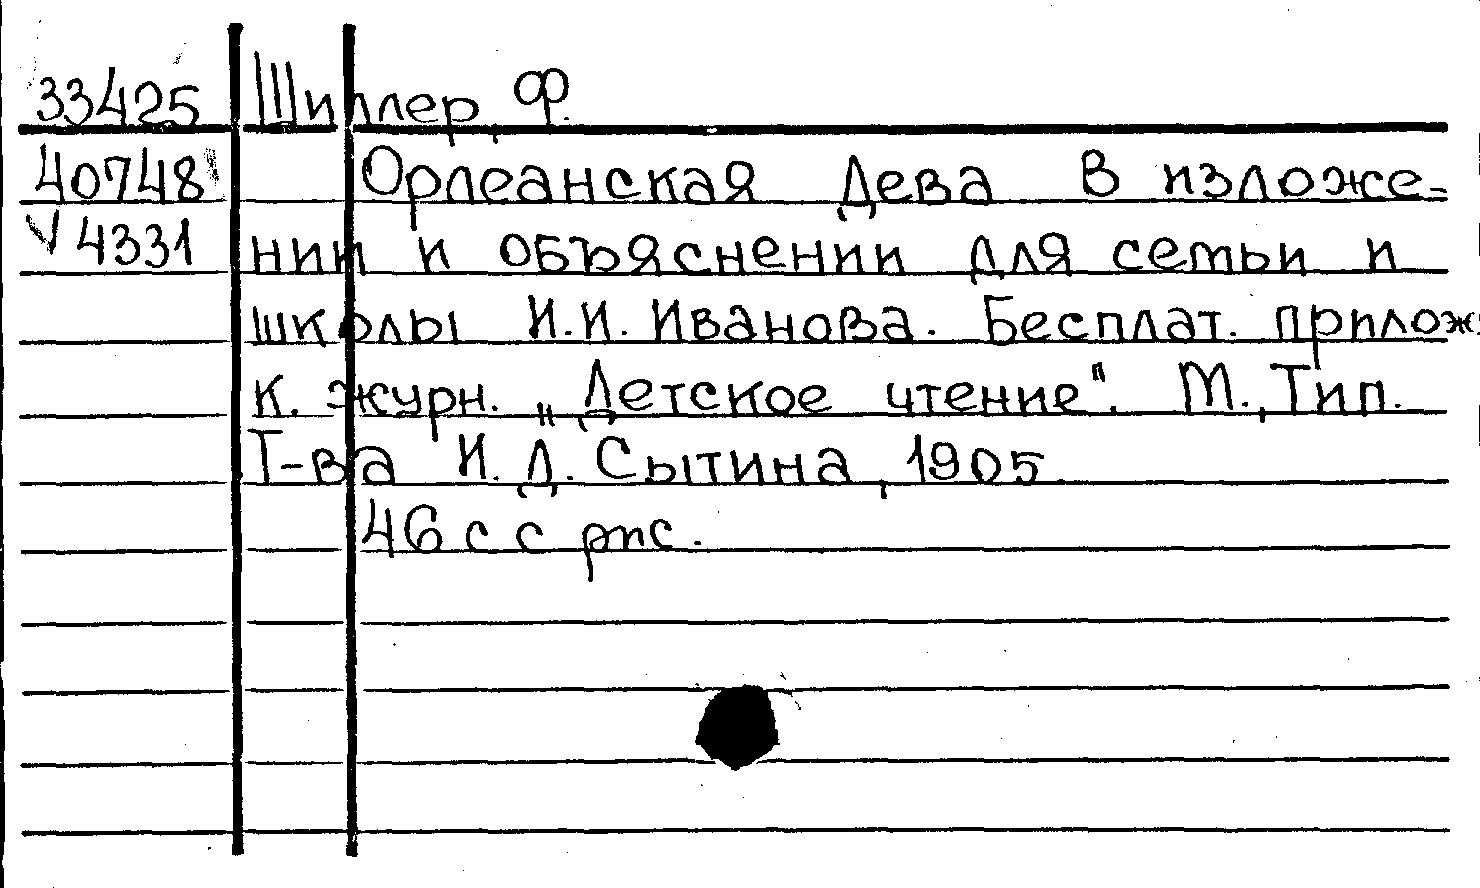 33425 Шиллер, Ф.
40748 Орлеанская Дева В изложе-
V 4331 нии и объяснении для семьи и
школы И.И. Иванова. Бесплат. прилож.
к. журн. „Детское чтение". М., Тип.
Т-ва И.Д. Сытина, 1905.
46 с с рис.